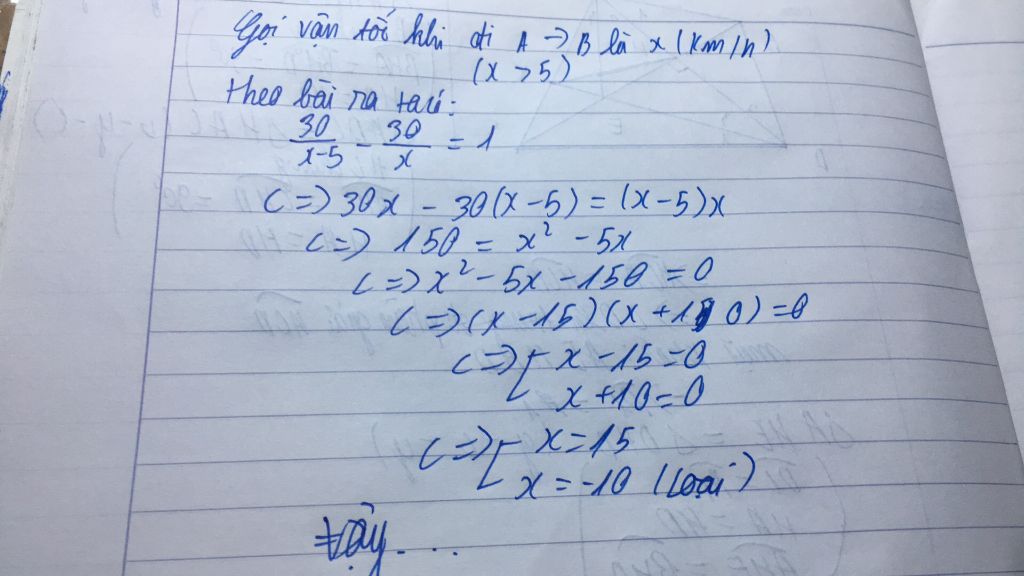 Gọi vận tốc khi đi A → B là x (km/h)
(x > 5)
theo bài ra ta có:
30/(x-5) - 30/x = 1
<=> 30x - 30(x-5) = (x-5)x
<=> 150 = x² - 5x
<=> x² - 5x - 150 = 0
<=> (x-15)(x+10) = 0
<=> [ x - 15 = 0
x + 10 = 0
<=> [ x = 15
x = -10 (loại)
Vậy ...